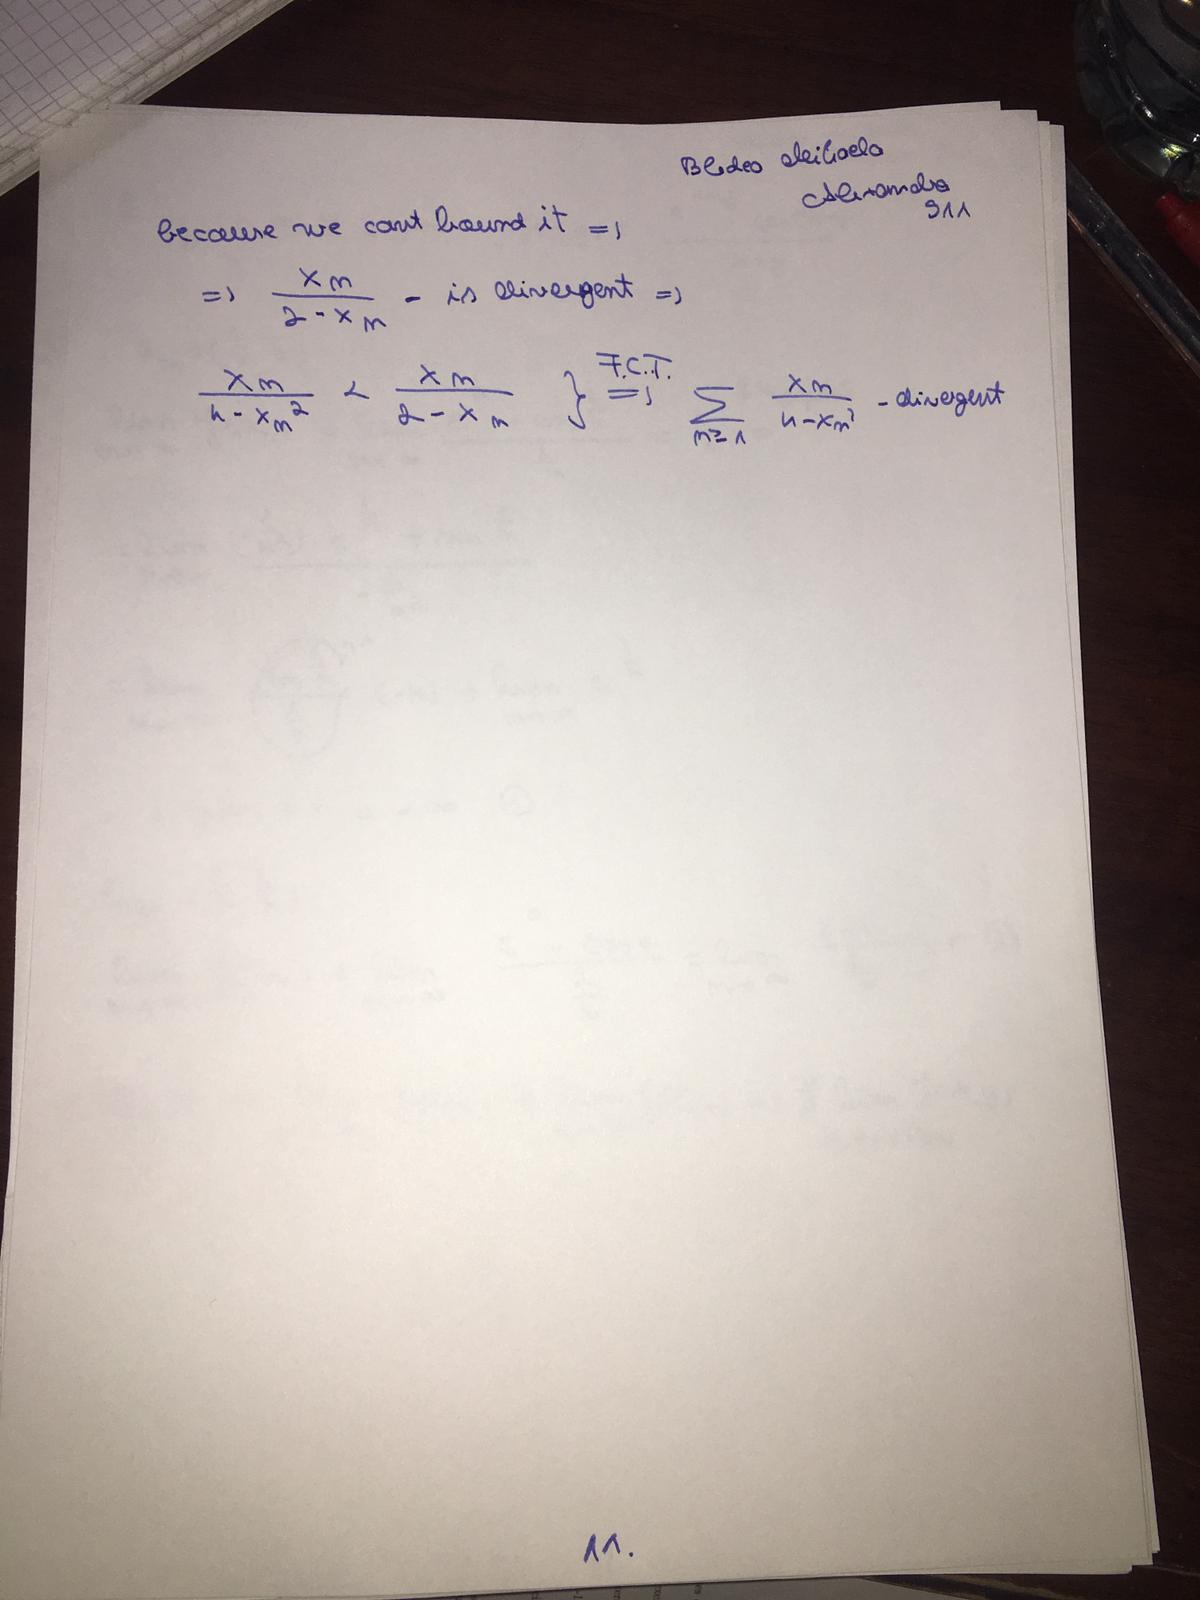 Bledea Mihaela
Alexandra
911
because we cant bound it =>
=> x_n / (2 - x_n) - is divergent =>
x_n / (4 - x_n^2) < x_n / (2 - x_n) } F.C.T. => ∑_{n≥1} x_n / (4 - x_n^2) - divergent
11.